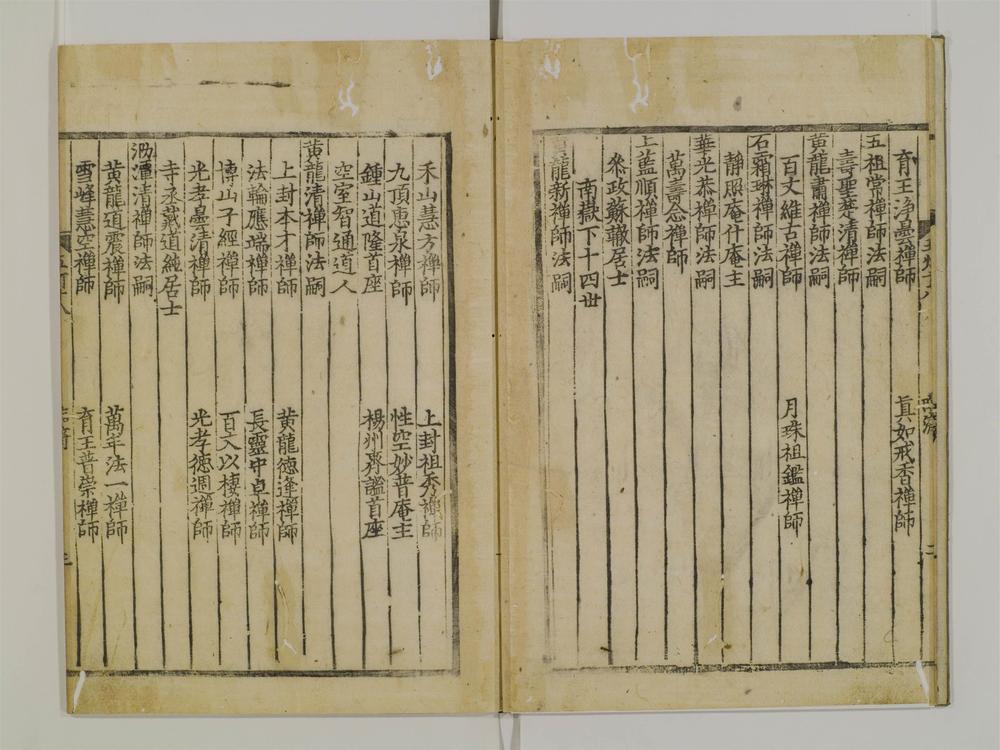 育王淨曇禪師　真如戒香禪師
五祖常禪師法嗣
壽聖楚清禪師
黄龍肅禪師法嗣
百丈維古禪師　月珠祖鑑禪師
石霜琳禪師法嗣
靜照庵什庵主
華光恭禪師法嗣
萬壽念禪師
上藍順禪師法嗣
叅政蘇轍居士
南嶽下十四世
黄龍新禪師法嗣
禾山慧方禪師　上封祖秀禪師
九頂惠泉禪師　性空妙普庵主
鍾山道隆首座　楊州齊謐首座
空室智通道人
黄龍清禪師法嗣
上封本才禪師　黄龍德逢禪師
法輪應端禪師　長靈守卓禪師
博山子經禪師　百丈以棲禪師
光孝曇清禪師　光孝德週禪師
寺丞戴道純居士
泐潭清禪師法嗣
黄龍道震禪師　萬年法一禪師
雪峰慧空禪師　育王普崇禪師